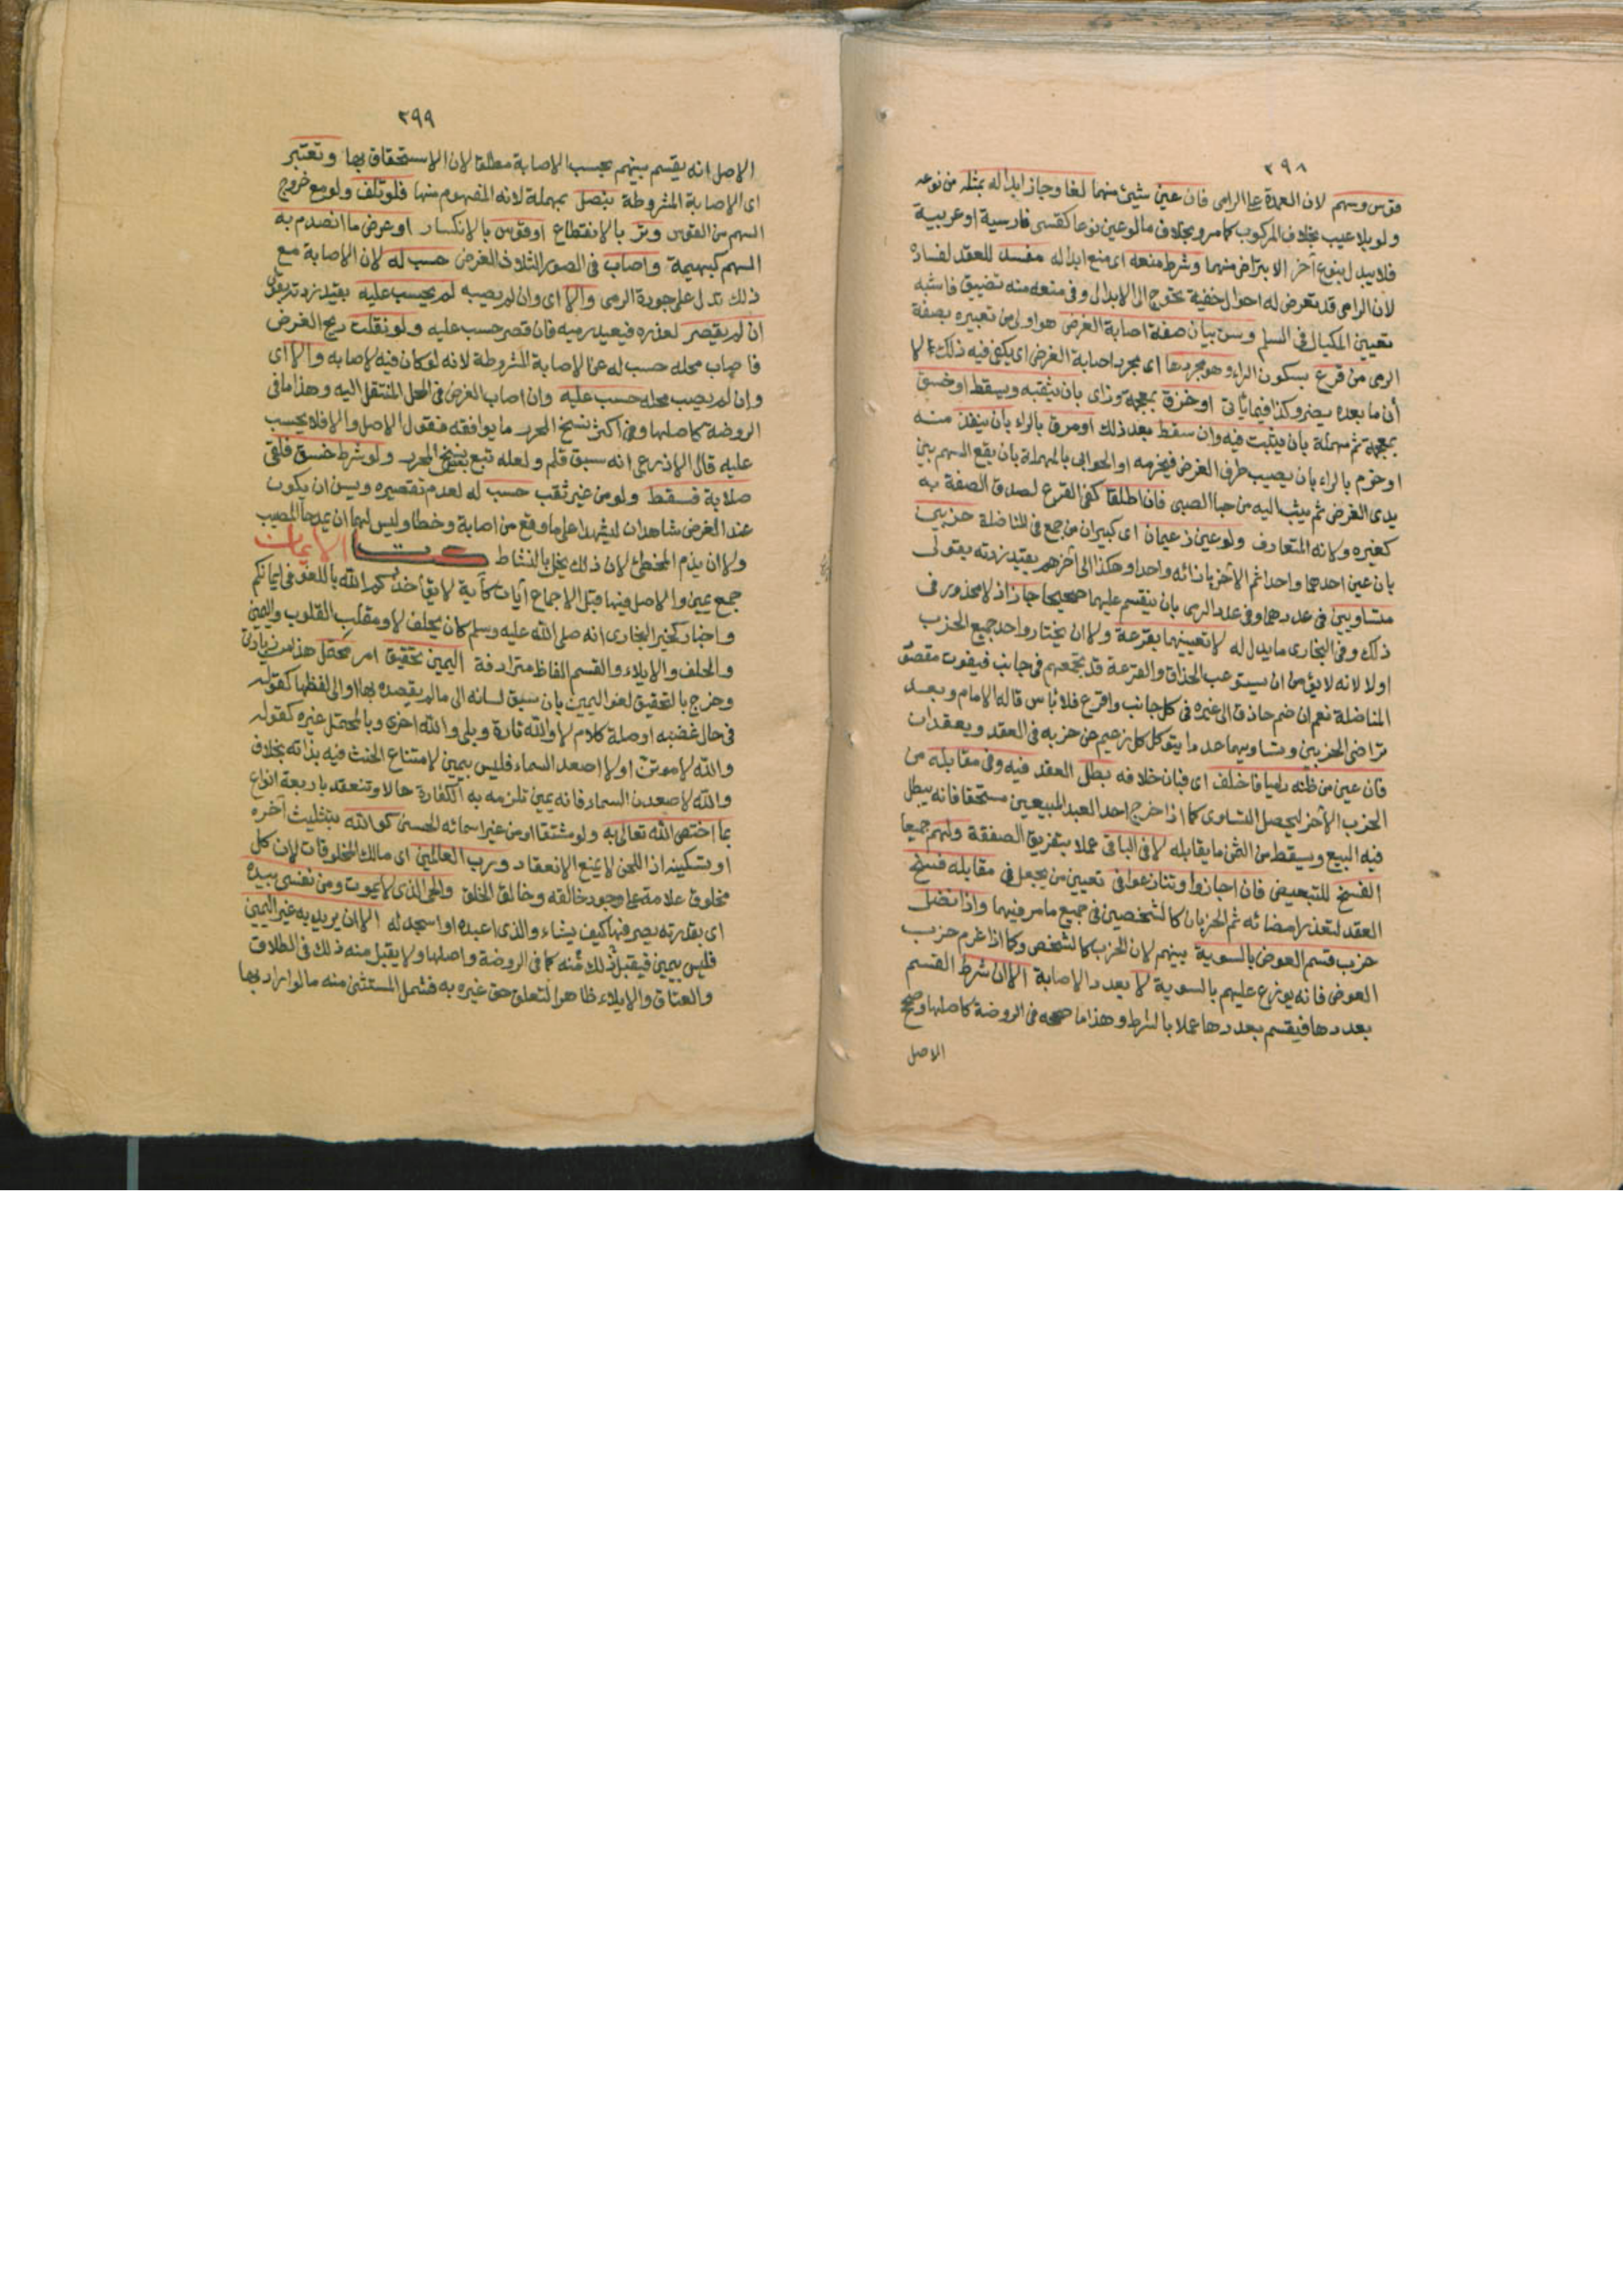 ٢٩٨
قوس وسهم لان العمدة على الرامى فان عين شيئ منهما لغا وجاز ابداله بمثله من نوعه
ولو بلا عيب بخلاف المركوب كما مر وبخلاف ما لو عين نوعا كقسى فارسية او عربية
فلا يبدل بنوع آخر الا بتراض منهما وشرط منعه اى منع ابداله مفسد للعقد لفساده
لان الرامى قد تعرض له احوال خفية تحوج الى الابدال وفى منعه منه تضييق فاشبه
تعيين المكيال فى السلم وسن بيان صفة اصابة الغرض هو اولى من تعبيره بصفة
الرمى من قرع بسكون الراء وهو مجردها اى مجرد اصابة الغرض اى يكفى فيه ذلك لا
أن ما بعده يضر وكذا فيما يأتى او خزق بمعجمة وزاى بان يثقبه ويسقط او خسق
بمعجمة ثم مهملة بان يثبت فيه وان سقط بعد ذلك او مرق بالراء بأن ينفذ منه
او خرم بالراء بان يصيب طرف الغرض فيخرمه او الحوابى بالمهملة بأن يقع السهم بين
يدى الغرض ثم يثب اليه من حبا الصبى فان اطلقا كفى القرع لصدق الصفة به
كغيره ولانه المتعارف ولو عين زعيمان اى كبيران من جمع فى المناضلة حزبين
بان عين احدهما واحدا ثم الآخر بازائه واحدا وهكذا الى آخرهم بقيد زدته بقولى
متساويين فى عددهما وفى عدد الرمى بان ينقسم عليهما صحيحا جاز اذ لا محذور فى
ذلك وفى البخارى ما يدل له لا تعيينهما بقرعة ولا ان يختار واحد جميع الحزب
اولا لانه لا يؤمن ان يستوعب الحذاق والقرعة قد تجمعهم فى جانب فيفوت مقصود
المناضلة نعم ان ضم حاذق الى غيره فى كل جانب واقرع فلا بأس قاله الامام وبعد
تراضى الحزبين وتساويهما عددا يتوكل كل زعيم عن حزبه فى العقد ويعقدان
فان عين من ظنه راميا فاخلف اى فبان خلافه بطل العقد فيه وفى مقابله من
الحزب الآخر ليحصل التساوى كما اذا خرج احد العبد المبيعين مستحقا فانه يبطل
فيه البيع ويسقط من الثمن ما يقابله لا فى الباقى عملا بتفريق الصفقة ولهم جميعا
الفسخ للتبعيض فان اجازوا وتنازعوا فى تعيين من يجعل فى مقابله فسخ
العقد لتعذر امضائه ثم الحزبان كالشخصين فى جميع ما مر فيهما واذا نضل
حزب قسم العوض بالسوية بينهم لان الحزب كالشخص وكما اذا غرم حزب
العوض فانه يوزع عليهم بالسوية لا بعدد الاصابة الا ان شرط القسم
بعددها فيقسم بعددها عملا بالشرط وهذا ما صححه فى الروضة كاصلها وصحح
الاصل
٢٩٩
الاصل انه يقسم بينهم بحسب الاصابة مطلقا لان الاستحقاق بها وتعتبر
اى الاصابة المشروطة بنصل بمهملة لانه المفهوم منها فلو تلف ولو مع خروج
السهم من القوس وتر بالانقطاع او قوس بالانكسار او عرض ما انصدم به
السهم كبهيمة واصاب فى الصور الثلاث الغرض حسب له لان الاصابة مع
ذلك تدل على جودة الرمى والا اى وان لم يصبه لم يحسب عليه بقيد زدته بقولى
ان لم يقصر لعذره فيعيد رميه فان قصر حسب عليه ولو نقلت ريح الغرض
فاصاب محله حسب له عن الاصابة المشروطة لانه لو كان فيه لاصابه والا اى
وان لم يصب محله حسب عليه وان اصاب الغرض فى المحل المنتقل اليه وهذا ما فى
الروضة كاصلها وفى اكثر نسخ المحرر ما يوافقه فقول الاصل والا فلا يحسب
عليه قال الاذرعى انه سبق قلم ولعله تبع بعض نسخ المحرر ولو شرط خسق فلقى
صلابة فسقط ولو من غير ثقب حسب له لعدم تقصيره ويسن ان يكون
عند الغرض شاهدان ليشهدا على ما وقع من اصابة وخطا وليس لهما ان يمدحا المصيب
ولا ان يذم المخطئ لان ذلك يخل بالنشاط كتاب الايمان
جمع يمين والاصل فيها قبل الاجماع آيات كآية لا يؤاخذكم الله باللغو فى ايمانكم
واخبار كخبر البخارى انه صلى الله عليه وسلم كان يحلف لا ومقلب القلوب واليمين
والحلف والايلاء والقسم الفاظ مترادفة اليمين تحقيق امر محتمل هذا من زيادتى
وخرج بالتحقيق لغو اليمين بان سبق لسانه الى ما لم يقصده بها او الى لفظها كقوله
فى حال غضبه او صلة كلام لا والله تارة وبلى والله اخرى وبالمحتمل غيره كقوله
والله لاموتن او لا اصعد السماء فليس بيمين لامتناع الحنث فيه بذاته بخلاف
والله لاصعدن السماء فانه يمين تلزمه به الكفارة حالا وتنعقد باربعة انواع
بما اختص الله تعالى به ولو مشتقا او من غير اسمائه الحسنى كو الله بتثليث آخره
او تسكينه اذ اللحن لا يمنع الانعقاد ورب العالمين اى مالك المخلوقات لان كل
مخلوق علامة على وجود خالقه وخالق الخلق والحى الذى لا يموت ومن نفسى بيده
اى بقدرته يصرفها كيف يشاء والذى اعبده او اسجد له الا ان يريد به غير اليمين
فليس بيمين فيقبل ذلك منه كما فى الروضة واصلها ولا يقبل منه ذلك فى الطلاق
والعتاق والايلاء ظاهرا لتعلق حق غيره به فشمل المستثنى منه ما لو اراد بها